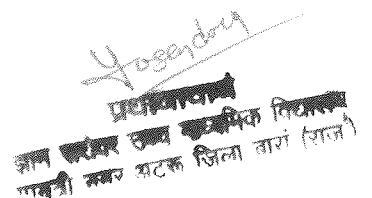 Yosendry
प्रधानाचार्य
ज्ञान सरोवर उच्च माध्यमिक विद्यालय
गायत्री नगर अटरू जिला बारां (राज॰)